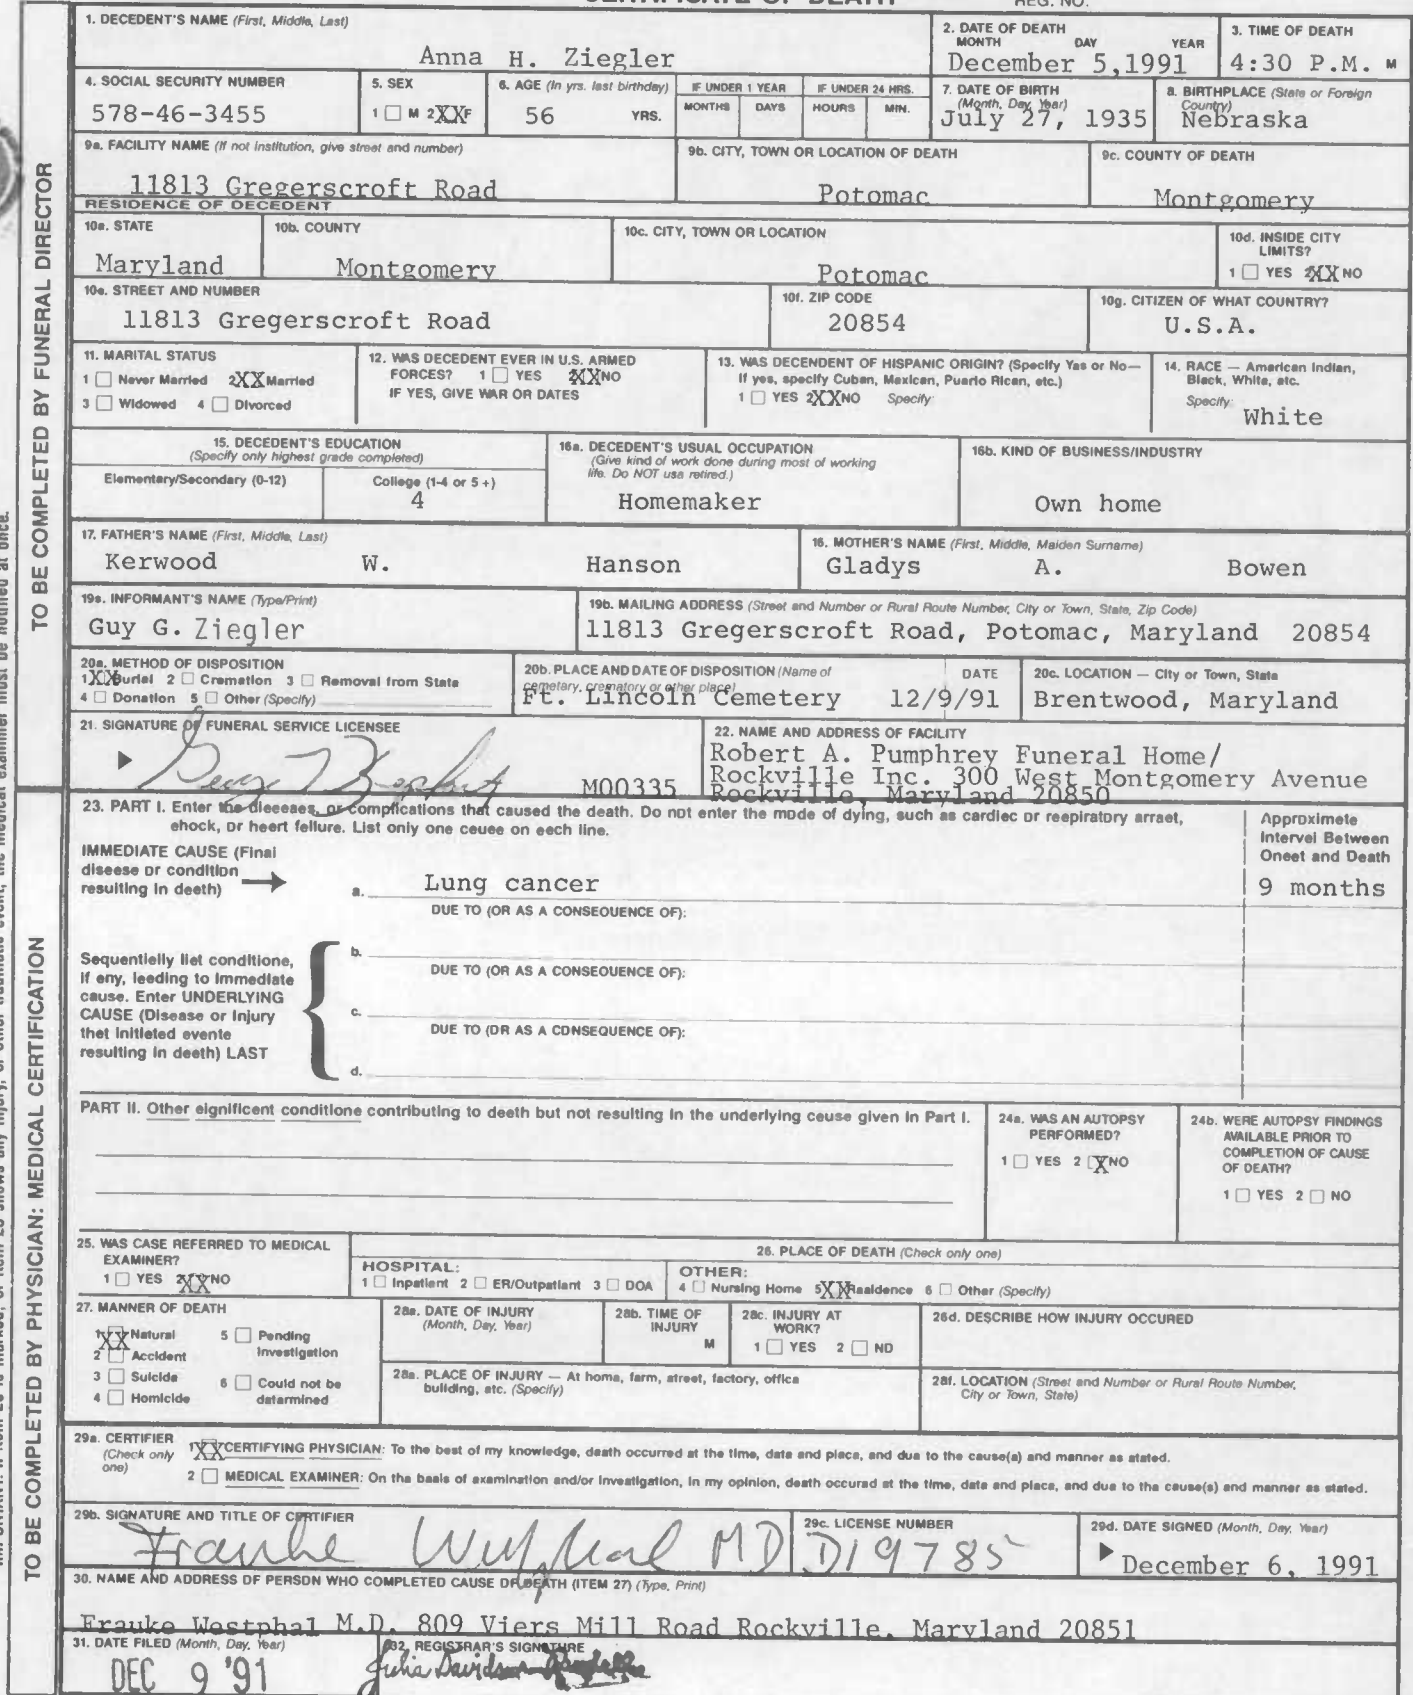 CERTIFICATE OF DEATH
REG. NO.
1. DECEDENT'S NAME (First, Middle, Last)
Anna H. Ziegler
2. DATE OF DEATH
MONTH DAY YEAR
December 5,1991
3. TIME OF DEATH
4:30 P.M. M
4. SOCIAL SECURITY NUMBER
578-46-3455
5. SEX
1 M 2XXF
6. AGE (In yrs. last birthday)
56 YRS.
IF UNDER 1 YEAR
MONTHS DAYS
IF UNDER 24 HRS.
HOURS MIN.
7. DATE OF BIRTH
(Month, Day, Year)
July 27, 1935
8. BIRTHPLACE (State or Foreign
Country)
Nebraska
9a. FACILITY NAME (If not institution, give street and number)
11813 Gregerscroft Road
9b. CITY, TOWN OR LOCATION OF DEATH
Potomac
9c. COUNTY OF DEATH
Montgomery
RESIDENCE OF DECEDENT
10a. STATE
Maryland
10b. COUNTY
Montgomery
10c. CITY, TOWN OR LOCATION
Potomac
10d. INSIDE CITY
LIMITS?
1 YES 2XX NO
10e. STREET AND NUMBER
11813 Gregerscroft Road
10f. ZIP CODE
20854
10g. CITIZEN OF WHAT COUNTRY?
U.S.A.
11. MARITAL STATUS
1 Never Married 2XX Married
3 Widowed 4 Divorced
12. WAS DECEDENT EVER IN U.S. ARMED
FORCES? 1 YES 2XXNO
IF YES, GIVE WAR OR DATES
13. WAS DECENDENT OF HISPANIC ORIGIN? (Specify Yas or No—
If yes, specify Cuban, Mexican, Puerto Rican, etc.)
1 YES 2XXNO Specify:
14. RACE — American Indian,
Black, White, atc.
Specify:
White
15. DECEDENT'S EDUCATION
(Specify only highest grade completed)
Elementary/Secondary (0-12)
College (1-4 or 5+)
4
16a. DECEDENT'S USUAL OCCUPATION
(Give kind of work done during most of working
life. Do NOT usa retired.)
Homemaker
16b. KIND OF BUSINESS/INDUSTRY
Own home
17. FATHER'S NAME (First, Middle, Last)
Kerwood W. Hanson
18. MOTHER'S NAME (First, Middle, Maiden Surname)
Gladys A. Bowen
19a. INFORMANT'S NAME (Type/Print)
Guy G. Ziegler
19b. MAILING ADDRESS (Street and Number or Rural Route Number, City or Town, State, Zip Code)
11813 Gregerscroft Road, Potomac, Maryland 20854
20a. METHOD OF DISPOSITION
1XXBurial 2 Cremation 3 Removal from State
4 Donation 5 Other (Specify)
20b. PLACE AND DATE OF DISPOSITION (Name of
cemetary, crematory or other place)
DATE
Ft. Lincoln Cemetery 12/9/91
20c. LOCATION — City or Town, Stata
Brentwood, Maryland
21. SIGNATURE OF FUNERAL SERVICE LICENSEE
M00335
22. NAME AND ADDRESS OF FACILITY
Robert A. Pumphrey Funeral Home/
Rockville Inc. 300 West Montgomery Avenue
Rockville, Maryland 20850
23. PART I. Enter the diseeaes, or complications that caused the death. Do not enter the mode of dying, such as cardiec or reepiratory arraet,
ehock, or heert fellure. List only one ceuee on eech line.
Approximete
Intervel Between
Oneet and Death
IMMEDIATE CAUSE (Final
diseese or condition
resulting in death)
a. Lung cancer
9 months
DUE TO (OR AS A CONSEQUENCE OF):
Sequentielly liet conditione,
if eny, leeding to immediate
cause. Enter UNDERLYING
CAUSE (Disease or injury
thet initieted evente
resulting in deeth) LAST
b.
DUE TO (OR AS A CONSEQUENCE OF):
c.
DUE TO (OR AS A CONSEQUENCE OF):
d.
PART II. Other eignificent conditione contributing to deeth but not resulting in the underlying ceuse given in Part I.
24a. WAS AN AUTOPSY
PERFORMED?
1 YES 2 XNO
24b. WERE AUTOPSY FINDINGS
AVAILABLE PRIOR TO
COMPLETION OF CAUSE
OF DEATH?
1 YES 2 NO
25. WAS CASE REFERRED TO MEDICAL
EXAMINER?
1 YES 2XXNO
26. PLACE OF DEATH (Check only one)
HOSPITAL:
1 Inpatient 2 ER/Outpatiant 3 DOA
OTHER:
4 Nursing Home 5XXRaaldence 6 Othar (Specify)
27. MANNER OF DEATH
1XX Natural
2 Accident
3 Suicida
4 Homicide
5 Pending
Investigation
6 Could not be
datarmined
28a. DATE OF INJURY
(Month, Day, Year)
28b. TIME OF
INJURY
M
28c. INJURY AT
WORK?
1 YES 2 NO
28d. DESCRIBE HOW INJURY OCCURED
28e. PLACE OF INJURY — At homa, farm, atreet, factory, offica
building, atc. (Specify)
28f. LOCATION (Street and Number or Rural Route Number,
City or Town, State)
29a. CERTIFIER
(Check only
one)
1XXCERTIFYING PHYSICIAN: To the best of my knowledge, daath occurred at the time, data and placa, and due to the cause(a) and manner as atated.
2 MEDICAL EXAMINER: On tha basis of axamination and/or Investigation, in my opinion, death occurad at the time, data and placa, and dua to tha cauaa(s) and manner as stated.
29b. SIGNATURE AND TITLE OF CERTIFIER
Frauke Westphal MD
29c. LICENSE NUMBER
D19785
29d. DATE SIGNED (Month, Day, Year)
December 6, 1991
30. NAME AND ADDRESS OF PERSON WHO COMPLETED CAUSE OF DEATH (ITEM 27) (Type, Print)
Frauke Westphal M.D. 809 Viers Mill Road Rockville, Maryland 20851
31. DATE FILED (Month, Day, Year)
DEC 9 '91
32. REGISTRAR'S SIGNATURE
Julia Davidson
TO BE COMPLETED BY FUNERAL DIRECTOR
TO BE COMPLETED BY PHYSICIAN: MEDICAL CERTIFICATION